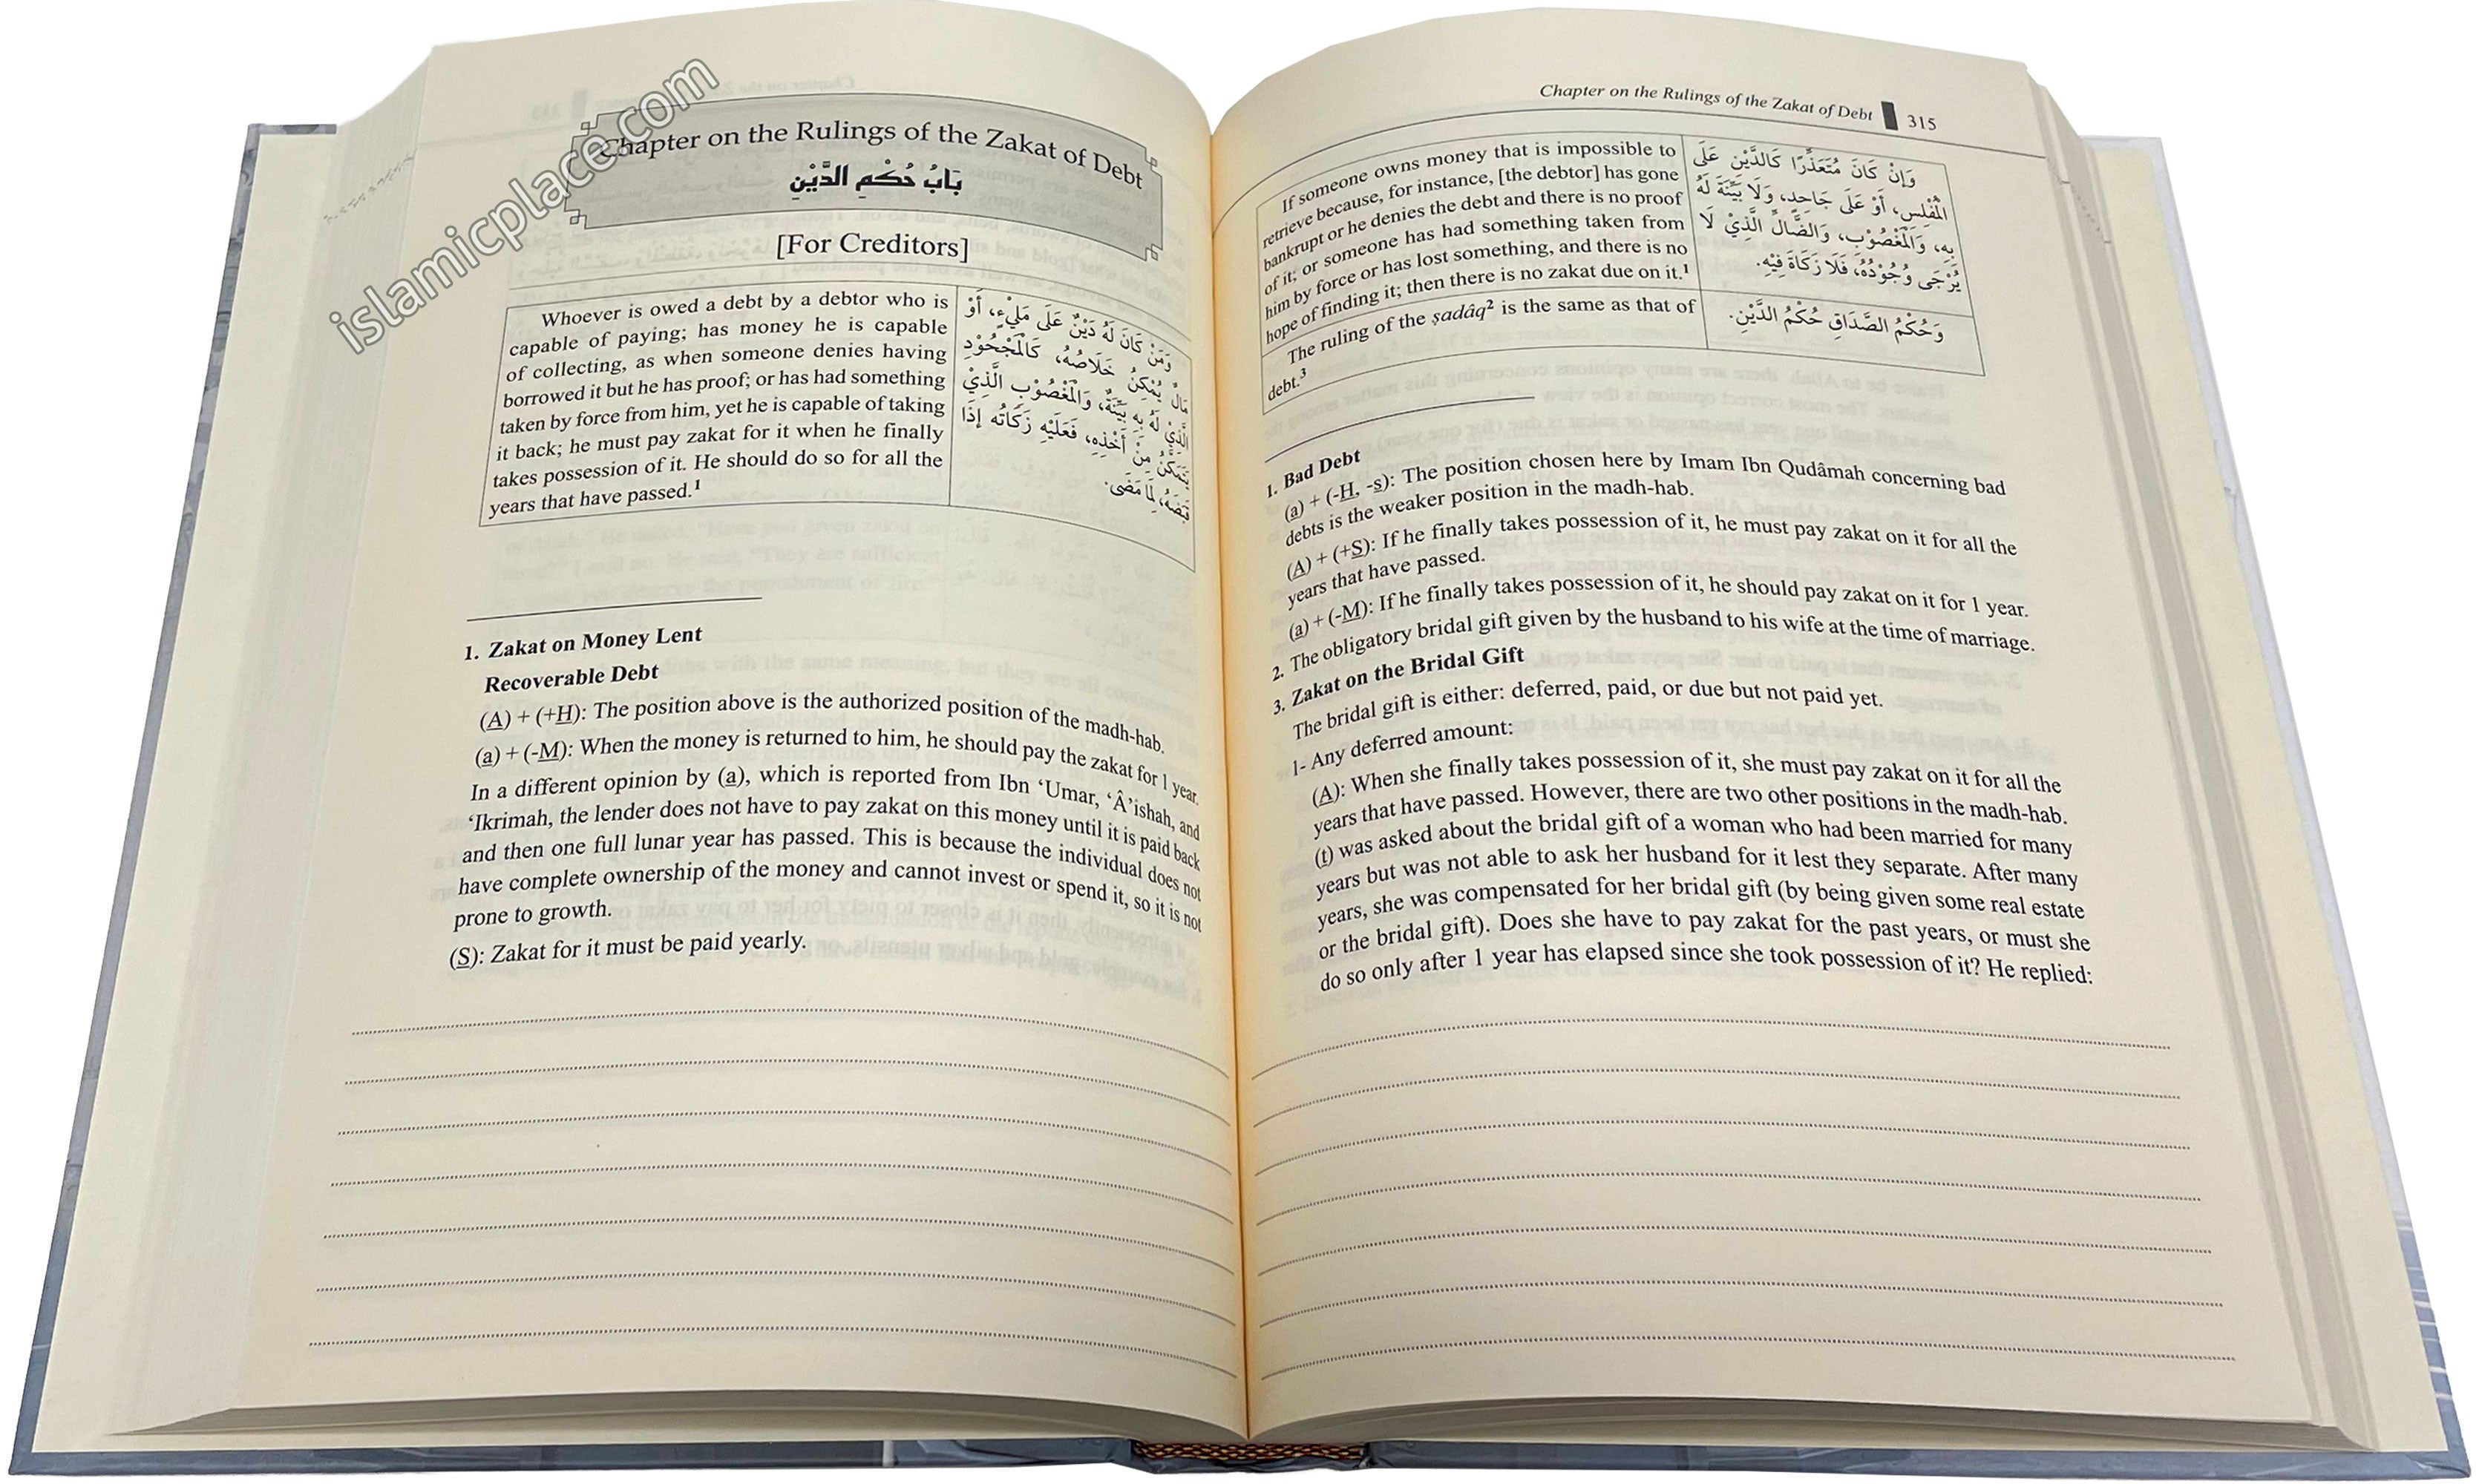 islamicplace.com
Chapter on the Rulings of the Zakat of Debt
بَابُ حُكْمِ الدَّيْنِ
[For Creditors]
Whoever is owed a debt by a debtor who is
capable of paying; has money he is capable
of collecting, as when someone denies having
borrowed it but he has proof; or has had something
taken by force from him, yet he is capable of taking
it back; he must pay zakat for it when he finally
takes possession of it. He should do so for all the
years that have passed.¹
وَمَنْ كَانَ لَهُ دَيْنٌ عَلَى مَلِيْءٍ، أَوْ
مَالٌ يُمْكِنُ خَلَاصُهُ، كَالْمَجْحُوْدِ
الَّذِيْ لَهُ بِهِ بَيِّنَةٌ، وَالْمَغْصُوْبِ الَّذِيْ
يَتَمَكَّنُ مِنْ أَخْذِهِ، فَعَلَيْهِ زَكَاتُه إِذَا
قَبَضَهُ، لِمَا مَضَى.
1. Zakat on Money Lent
Recoverable Debt
(A) + (+H): The position above is the authorized position of the madh-hab.
(a) + (-M): When the money is returned to him, he should pay the zakat for 1 year.
In a different opinion by (a), which is reported from Ibn ‘Umar, ‘Â’ishah, and
‘Ikrimah, the lender does not have to pay zakat on this money until it is paid back
and then one full lunar year has passed. This is because the individual does not
have complete ownership of the money and cannot invest or spend it, so it is not
prone to growth.
(S): Zakat for it must be paid yearly.
Chapter on the Rulings of the Zakat of Debt 315
If someone owns money that is impossible to
retrieve because, for instance, [the debtor] has gone
bankrupt or he denies the debt and there is no proof
of it; or someone has had something taken from
him by force or has lost something, and there is no
hope of finding it; then there is no zakat due on it.¹
وَإِنْ كَانَ مُتَعَذِّرًا كَالدَّيْنِ عَلَى
الْمُفْلِسِ، أَوْ عَلَى جَاحِدٍ، وَلَا بَيِّنَةَ لَهُ
بِهِ، وَالْمَغْصُوْبِ، وَالضَّالِّ الَّذِيْ لَا
يُرْجَى وُجُوْدُهُ، فَلَا زَكَاةَ فِيْهِ.
The ruling of the ṣadâq² is the same as that of
debt.³
وَحُكْمُ الصَّدَاقِ حُكْمُ الدَّيْنِ.
1. Bad Debt
(a) + (-H, -s): The position chosen here by Imam Ibn Qudâmah concerning bad
debts is the weaker position in the madh-hab.
(A) + (+S): If he finally takes possession of it, he must pay zakat on it for all the
years that have passed.
(a) + (-M): If he finally takes possession of it, he should pay zakat on it for 1 year.
2. The obligatory bridal gift given by the husband to his wife at the time of marriage.
3. Zakat on the Bridal Gift
The bridal gift is either: deferred, paid, or due but not paid yet.
1- Any deferred amount:
(A): When she finally takes possession of it, she must pay zakat on it for all the
years that have passed. However, there are two other positions in the madh-hab.
(t) was asked about the bridal gift of a woman who had been married for many
years but was not able to ask her husband for it lest they separate. After many
years, she was compensated for her bridal gift (by being given some real estate
or the bridal gift). Does she have to pay zakat for the past years, or must she
do so only after 1 year has elapsed since she took possession of it? He replied: